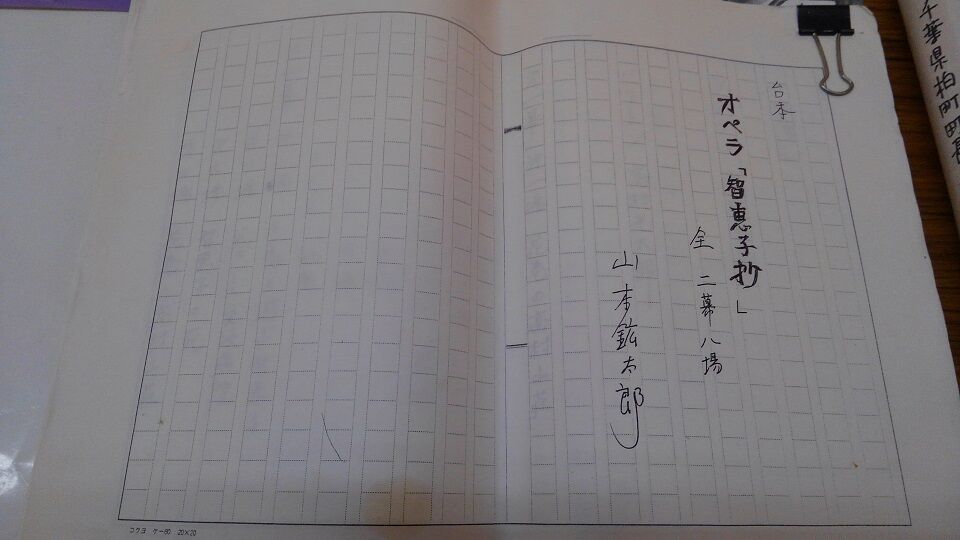 台本
オペラ「智恵子抄」
全二幕八場
山本鉱太郎
コクヨ ケー60 20×20
千葉県柏町町長